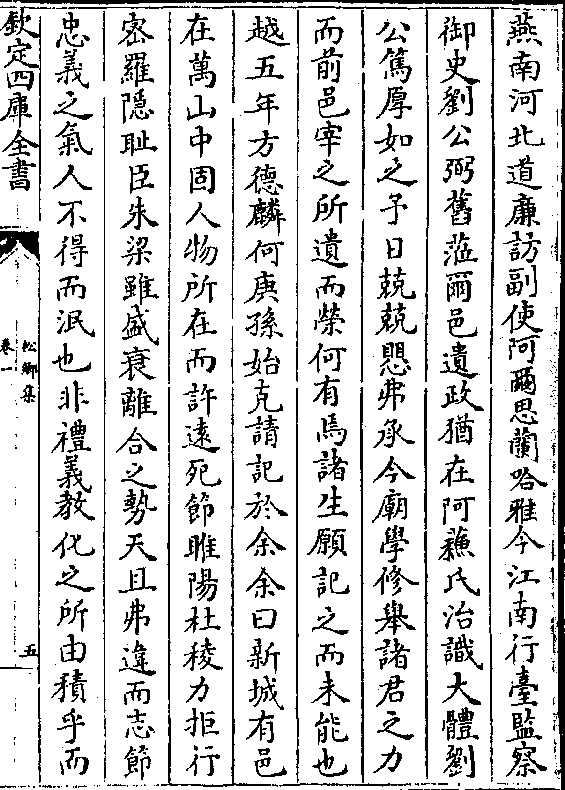 燕南河北道廉訪副使阿爾思蘭哈雅今江南行臺監察
御史劉公弼舊蒞爾邑遺政猶在阿蘓氏治識大體劉
公篤厚如之予日兢兢思弗承今廟學修舉諸君之力
而前邑宰之所遺而榮何有焉諸生願記之而未能也
越五年方德麟何庚孫始克請記於余余曰新城有邑
在萬山中固人物所在而許遠死節睢陽杜稜力拒行
宻羅隱耻臣朱梁雖盛衰離合之勢天且弗違而志節
忠義之氣人不得而泯也非禮義教化之所由積乎而
欽定四庫全書
松鄉集
卷一
五